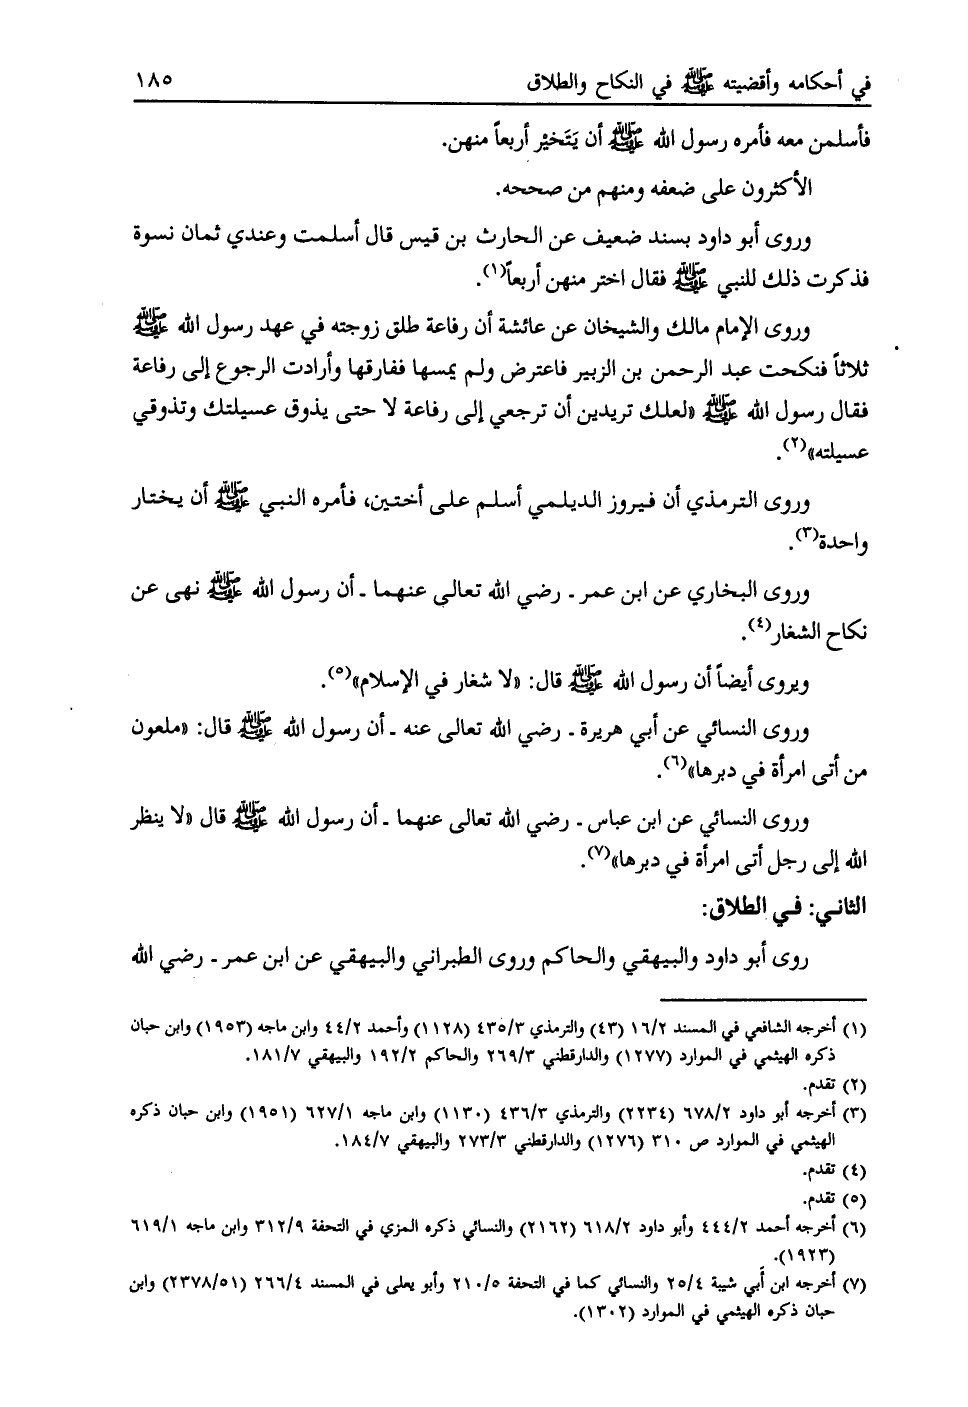 في أحكامه وأقضيته ﷺ في النكاح والطلاق ١٨٥
فأسلمن معه فأمره رسول الله ﷺ أن يَتَخيْر أربعاً منهن.
الأكثرون على ضعفه ومنهم من صححه.
وروى أبو داود بسند ضعيف عن الحارث بن قيس قال أسلمت وعندي ثمان نسوة
فذكرت ذلك للنبي ﷺ فقال اختر منهن أربعاً(١).
وروى الإمام مالك والشيخان عن عائشة أن رفاعة طلق زوجته في عهد رسول الله ﷺ
ثلاثاً فنكحت عبد الرحمن بن الزبير فاعترض ولم يمسها ففارقها وأرادت الرجوع إلى رفاعة
فقال رسول الله ﷺ «لعلك تريدين أن ترجعي إلى رفاعة لا حتى يذوق عسيلتك وتذوقي
عسيلته»(٢).
وروى الترمذي أن فيروز الديلمي أسلم على أختين، فأمره النبي ﷺ أن يختار
واحدة(٣).
وروى البخاري عن ابن عمر ـ رضي الله تعالى عنهما ـ أن رسول الله ﷺ نهى عن
نكاح الشغار(٤).
ويروى أيضاً أن رسول الله ﷺ قال: «لا شغار في الإسلام»(٥).
وروى النسائي عن أبي هريرة ـ رضي الله تعالى عنه ـ أن رسول الله ﷺ قال: «ملعون
من أتى امرأة في دبرها»(٦).
وروى النسائي عن ابن عباس ـ رضي الله تعالى عنهما ـ أن رسول الله ﷺ قال «لا ينظر
الله إلى رجل أتى امرأة في دبرها»(٧).
الثاني: في الطلاق:
روى أبو داود والبيهقي والحاكم وروى الطبراني والبيهقي عن ابن عمر ـ رضي الله
(١) أخرجه الشافعي في المسند ١٦/٢ (٤٣) والترمذي ٤٣٥/٣ (١١٢٨) وأحمد ٤٤/٢ وابن ماجه (١٩٥٣) وابن حبان
ذكره الهيثمي في الموارد (١٢٧٧) والدارقطني ٢٦٩/٣ والحاكم ١٩٢/٢ والبيهقي ١٨١/٧.
(٢) تقدم.
(٣) أخرجه أبو داود ٦٧٨/٢ (٢٢٣٤) والترمذي ٤٣٦/٣ (١١٣٠) وابن ماجه ٦٢٧/١ (١٩٥١) وابن حبان ذكره
الهيثمي في الموارد ص ٣١٠ (١٢٧٦) والدارقطني ٢٧٣/٣ والبيهقي ١٨٤/٧.
(٤) تقدم.
(٥) تقدم.
(٦) أخرجه أحمد ٤٤٤/٢ وأبو داود ٦١٨/٢ (٢١٦٢) والنسائي ذكره المزي في التحفة ٣١٢/٩ وابن ماجه ٦١٩/١
(١٩٢٣).
(٧) أخرجه ابن أَبي شيبة ٢٥/٤ والنسائي كما في التحفة ٢١٠/٥ وأبو يعلى في المسند ٢٦٦/٤ (٢٣٧٨/٥١) وابن
حبان ذكره الهيثمي في الموارد (١٣٠٢).